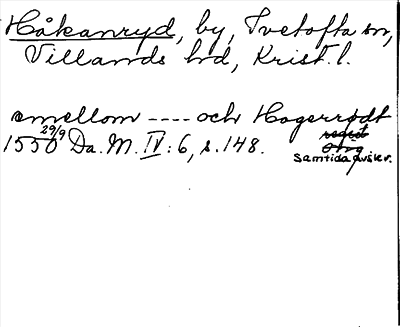 Håkanryd, by, Ivetofta sn,
Villands hd, Krist. l.
emellom ---- och Hagerrødt
1550 29/9 Da. M. IV: 6, s. 148.
Samtida avskr.